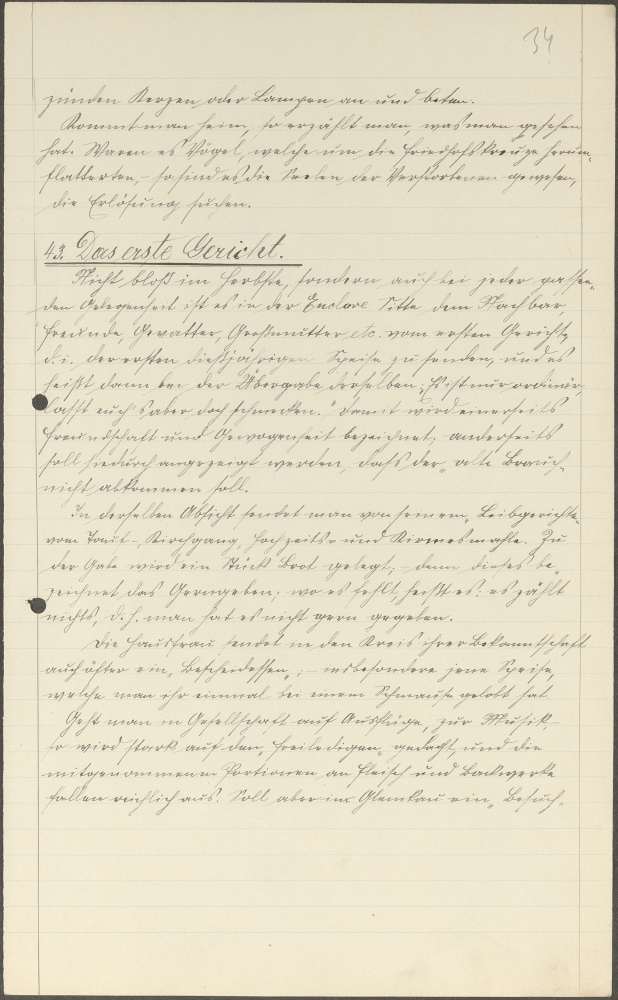 34
zünden Kerzen oder Lampen an und beten.
Kommt man heim, so erzählt man, was man gesehen
hat. Waren es Vögel, welche um die Friedhofskreuze herum-
flatterten, – so sind es die Seelen der Verstorbenen gewesen,
die Erlösung suchen.
43. Das erste Gericht.
Nicht bloß im Herbste, sondern auch bei jeder passen-
den Gelegenheit ist es in der Enclave Sitte dem Nachbar,
Freunde, Gevatter, Großmutter etc. vom ersten Gericht,
d. i. der ersten diesjährigen Speise zu senden, und es
heißt dann bei der Übergabe derselben: „Es ist nur ordinär,
lasst euch's aber doch schmecken." Damit wird einerseits
Freundschaft und Gewogenheit bezeichnet, anderseits
soll hiedurch angezeigt werden, dass der „alte Brauch"
nicht abkommen soll.
In derselben Absicht sendet man von seinem „Leibgerichte"
vom Tauf-, Kirchgang, Hochzeits- und Kirmesmahle. Zu
der Gabe wird ein Stück Brot gelegt, – denn dieses be-
zeichnet das Gerngeben; wo es fehlt, heißt es: es zählt
nichts, d. h. man hat es nicht gern gegeben.
Die Hausfrau sendet in den Kreis ihrer Bekanntschaft
auch öfter ein „Bescheidessen", – insbesondere jene Speise,
welche man ihr einmal bei einem Schmause gelobt hat.
Geht man in Gesellschaft auf Ausflüge, zur Musik,
so wird stark auf den „freiledigen" gedacht, und die
mitgenommenen Portionen an Fleisch und Backwerke
fallen reichlich aus. Soll aber im ein „Besuch"